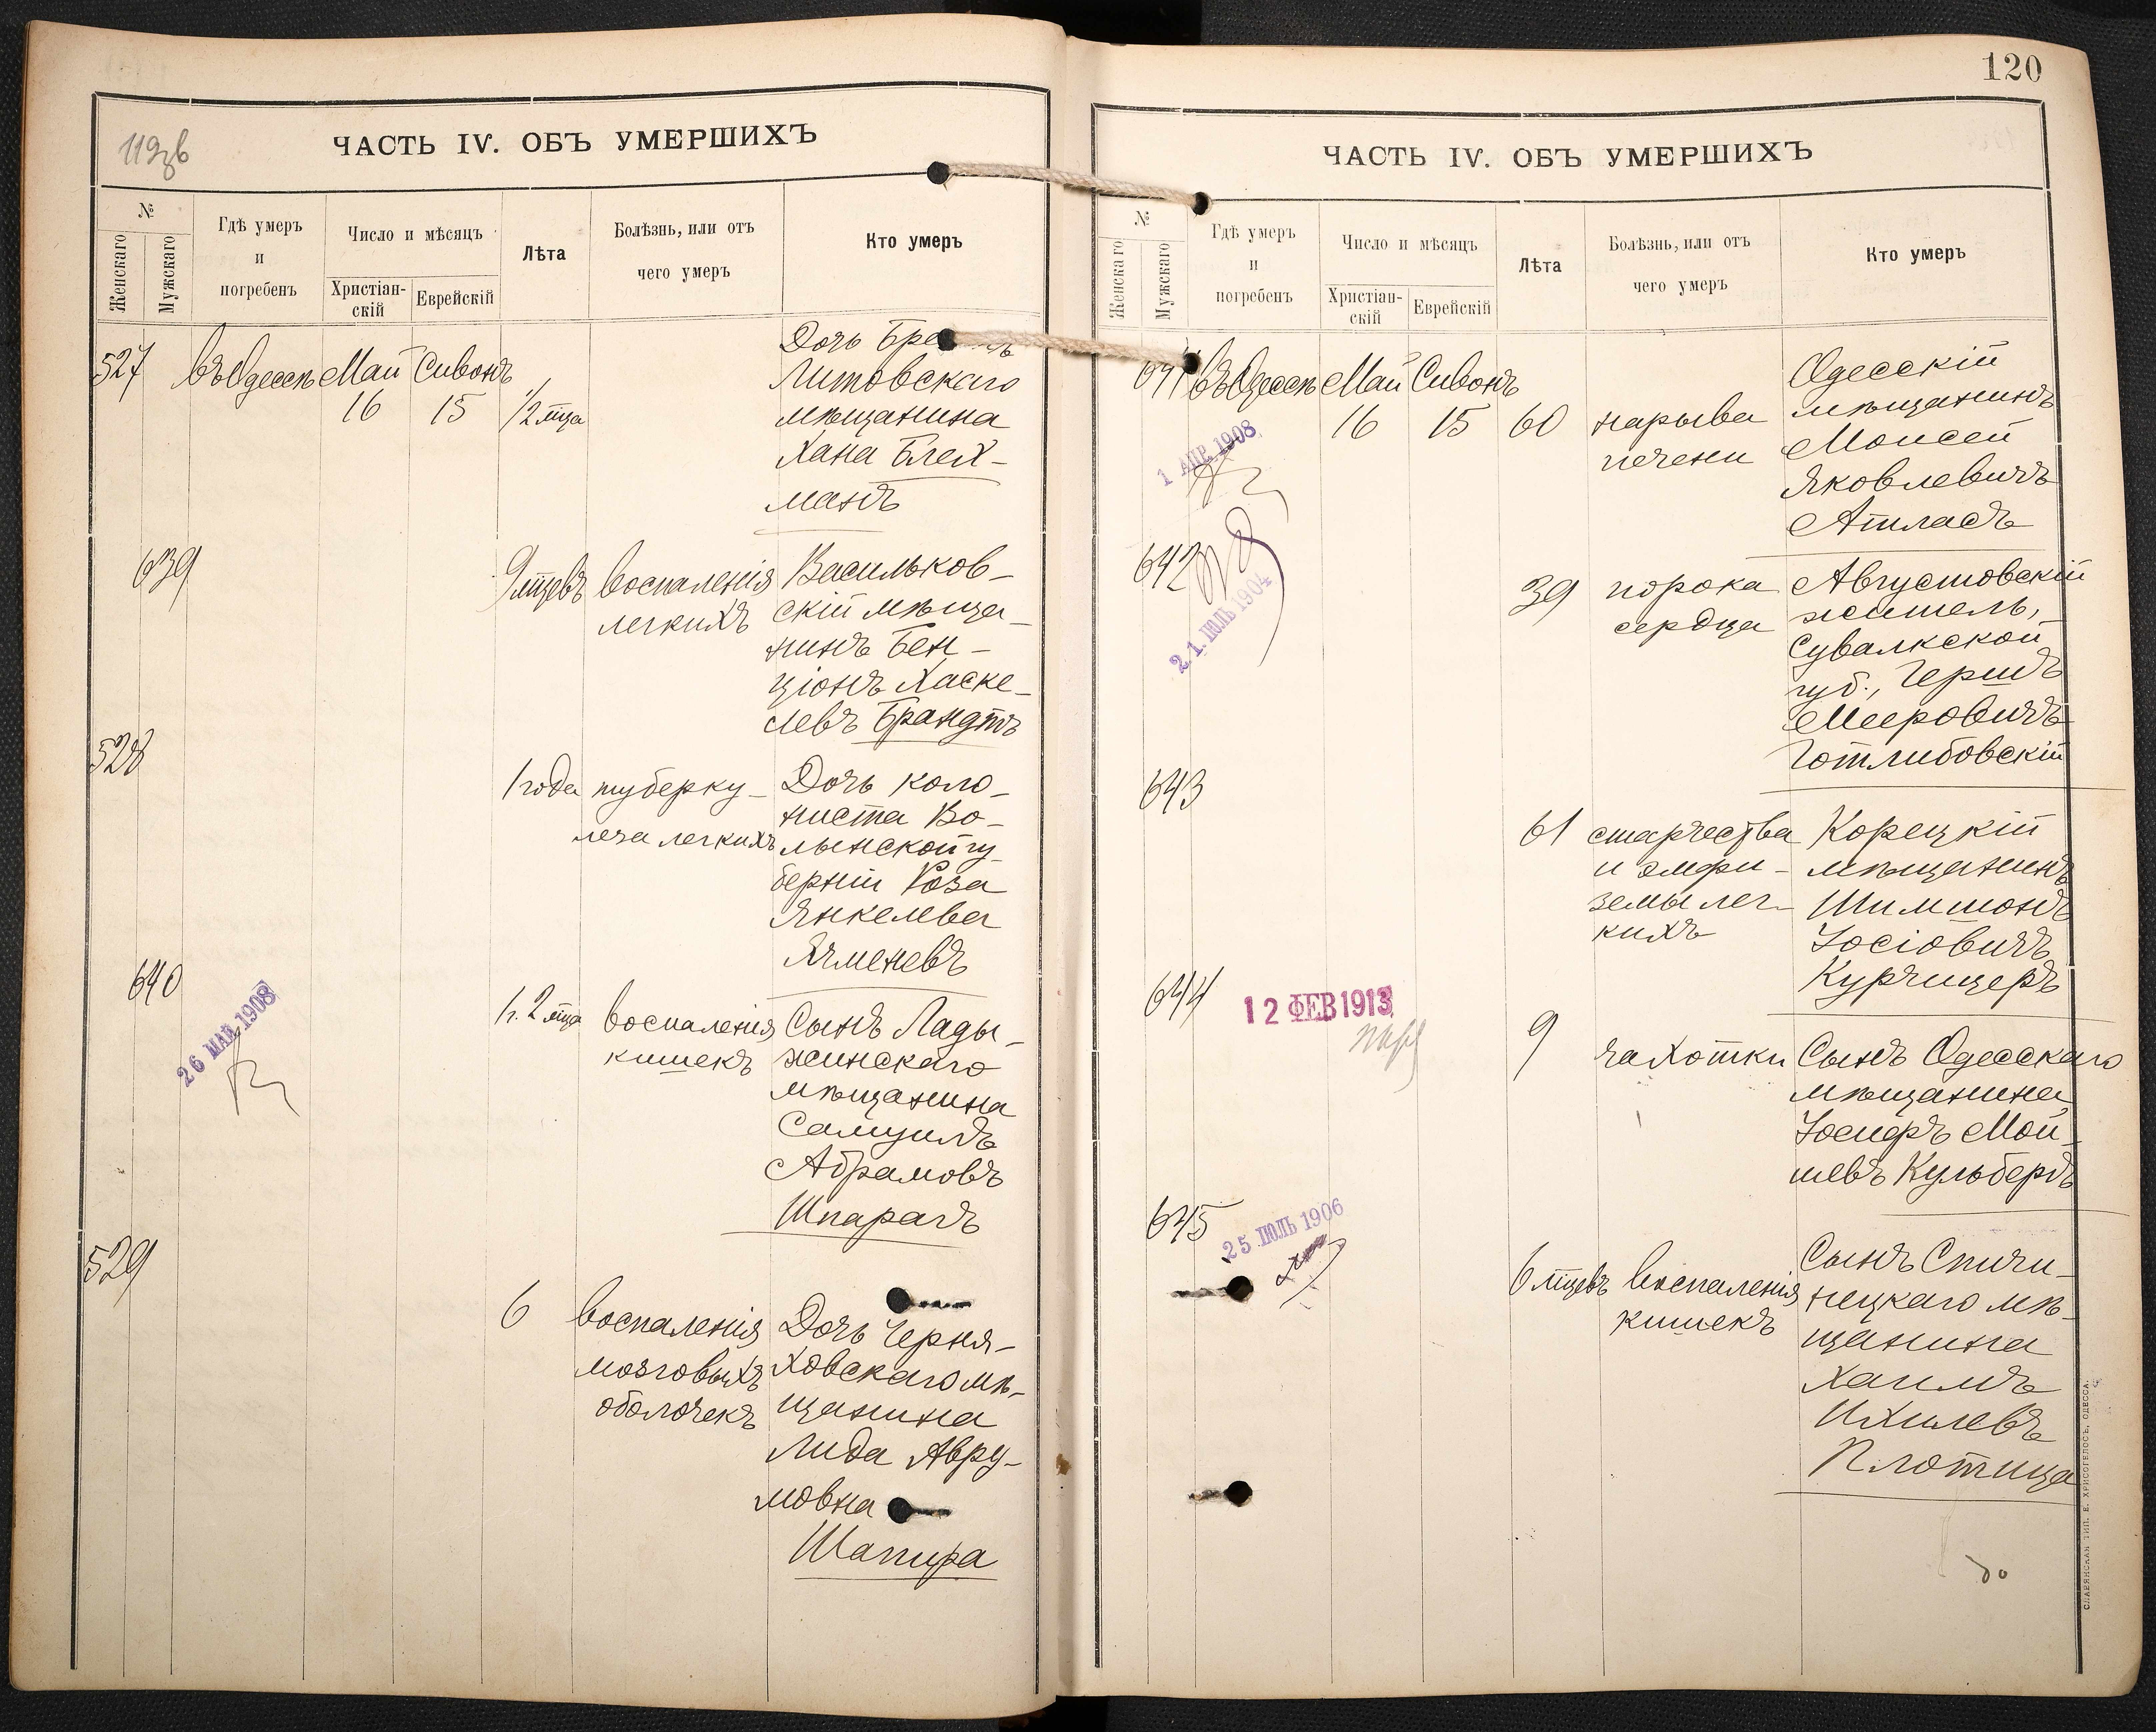 119 зв
ЧАСТЬ IV. ОБЪ УМЕРШИХЪ
№
Женскаго
Мужскаго
Гдѣ умеръ
и
погребенъ
Число и мѣсяцъ
Христіан-
скій
Еврейскій
Лѣта
Болѣзнь, или отъ
чего умеръ
Кто умеръ
527
въ Одессѣ
Май
16
Сивонъ
15
1/2 мѣца
Дочь
Литовскаго
мѣщанина
Хана Блех-
манъ
639
9 мѣцевъ
воспаленія
легкихъ
Васильков-
скій мѣща-
нинъ Бен-
ціонъ Хаске-
левъ Брандтъ
528
1 года
туберку-
леза легкихъ
Дочь коло-
ниста Во-
лынской гу-
берніи Роза
Янкелева
Ячменевъ
640
26 МАЙ 1908
1 г. 2 мѣца
воспаленія
кишекъ
Сынъ Лады-
жинскаго
мѣщанина
Самуилъ
Абрамовъ
Шпарагъ
529
6
воспаленія
мозговыхъ
оболочекъ
Дочь Черня-
ховскаго мѣ-
щанина
Лида Авру-
мовна
Шапира
120
ЧАСТЬ IV. ОБЪ УМЕРШИХЪ
№
Женскаго
Мужскаго
Гдѣ умеръ
и
погребенъ
Число и мѣсяцъ
Христіан-
скій
Еврейскій
Лѣта
Болѣзнь, или отъ
чего умеръ
Кто умеръ
641
въ Одессѣ
Май
16
Сивонъ
15
1 АПР. 1908
60
нарыва
печени
Одесскій
мѣщанинъ
Моисей
Яковлевичъ
Атласъ
642
21. ІЮЛЬ 1904
39
порока
сердца
Августовскій
житель,
Сувалкской
губ., Гершъ
Мееровичъ
Готлибовскій
643
61
старчества
и эмфи-
земы лег-
кихъ
Корецкій
мѣщанинъ
Шимшонъ
Іосіовичъ
Курчицеръ
644
12 ФЕВ 1913
9
чахотки
Сынъ Одесскаго
мѣщанина
Іосифъ Мой-
шевъ Кульбергъ
645
25 ІЮЛЬ 1906
6 мѣцевъ
воспаленія
кишекъ
Сынъ Спичи-
нецкаго мѣ-
щанина
Хаимъ
Ихилевъ
Плотица
СЛАВЯНСКАЯ ТИП. Е. ХРИСОГЕЛОСЪ, ОДЕССА.